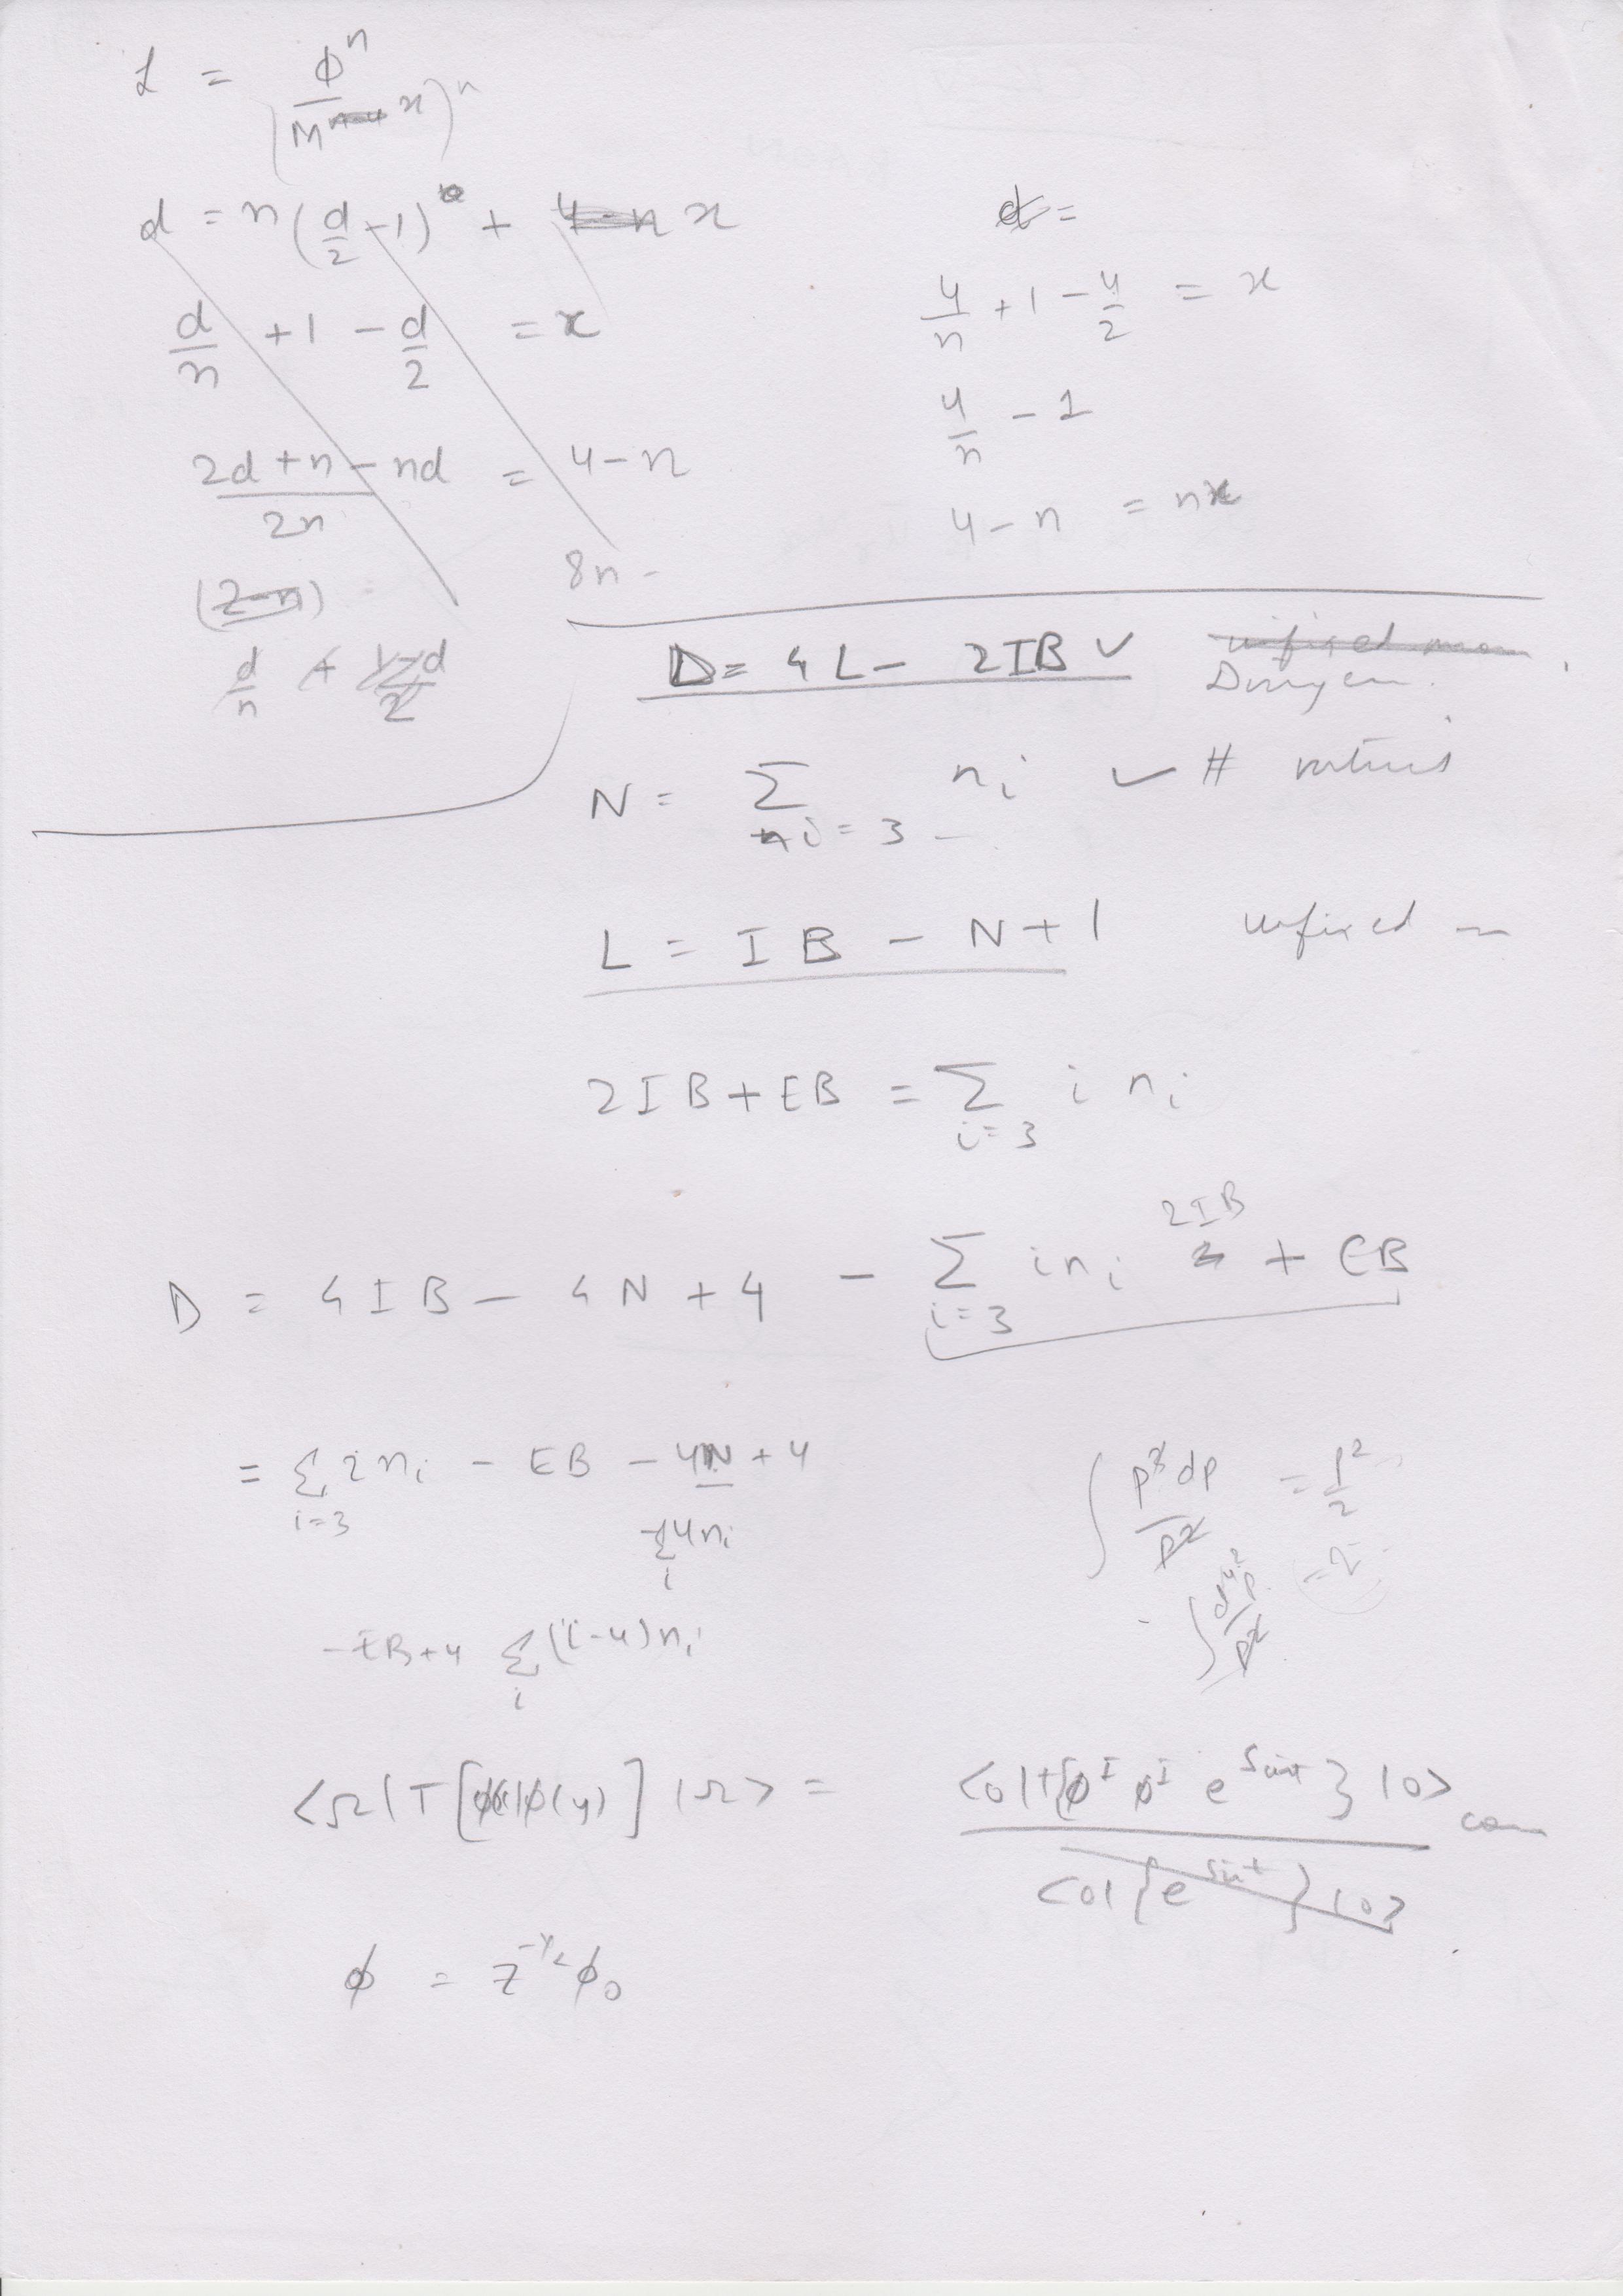 L = ϕ^n / (M^x)^n
d = n (d/2 - 1) + x
d/n + 1 - d/2 = x
(2d + n - nd)/2n = 4 - n
(2-n)
8n -
d/n +
d =
4/n + 1 - 4/2 = x
4/n - 1
4 - n = nx
D = 4L - 2IB ✓
N = Σ_{i=3} n_i ✓ #
L = IB - N + 1 unfixed
2IB + EB = Σ_{i=3} i n_i
D = 4IB - 4N + 4 - Σ_{i=3} i n_i 2IB + EB
= Σ_{i=3} i n_i - EB - 4N + 4
Σ_i 4n_i
-EB + 4 Σ_i (i-4) n_i
∫ p^3 dp / p^2 = p^2/2
= 2
∫ d^4p / p^2
<Ω| T [ϕ(x) ϕ(y)] |Ω> = <0|T{ϕ^I ϕ^I e^{Sint}}|0> / <0|{e^{Sint}}|0>
ϕ = Z^{-1/2} ϕ_0